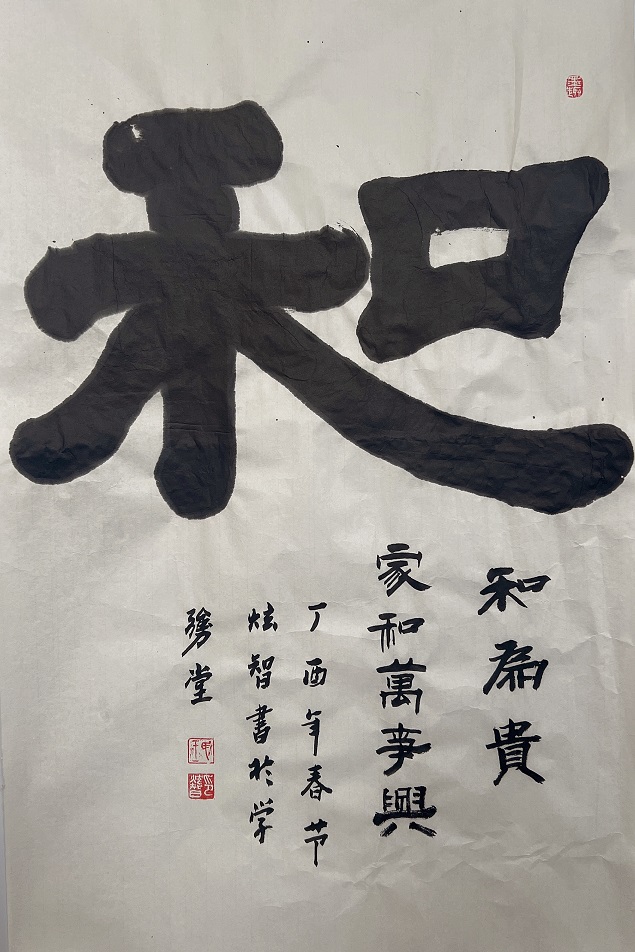 和
和為貴
家和萬事興
丁酉年春节
炫智書於学
堂